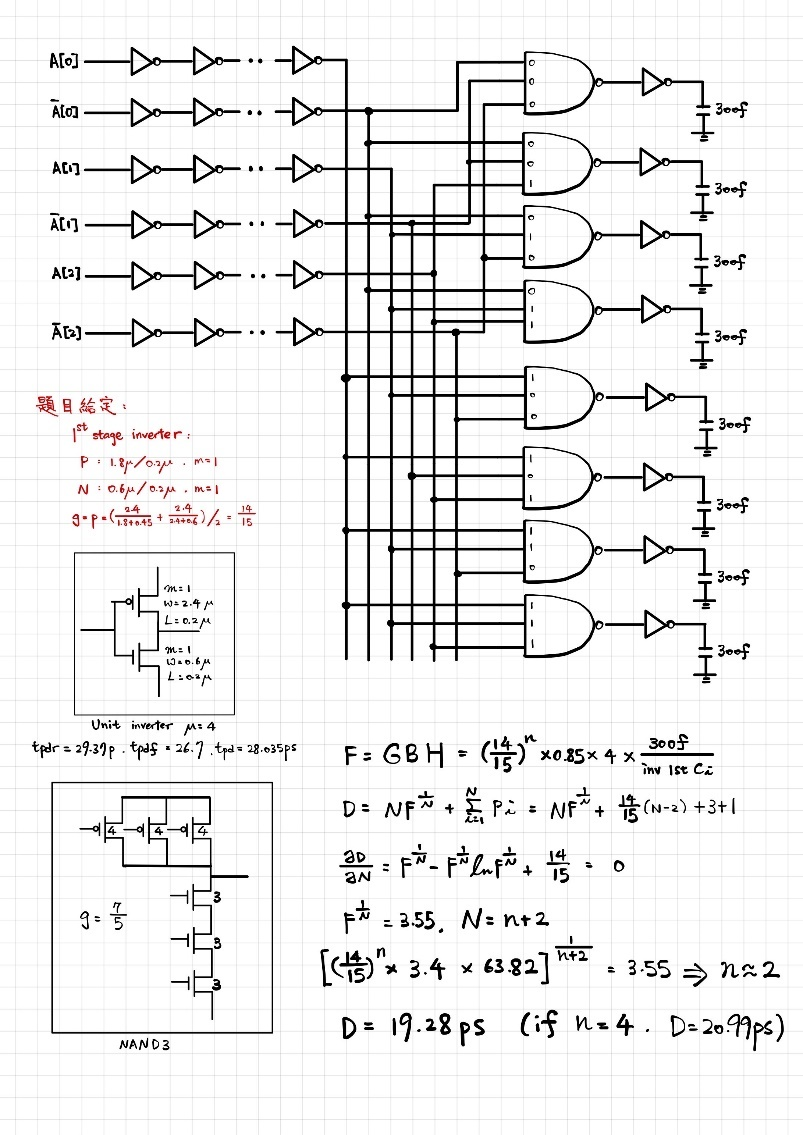 A[0]
Ā[0]
A[1]
Ā[1]
A[2]
Ā[2]
0
0
0
300f
0
0
1
300f
0
1
0
300f
0
1
1
300f
1
1
0
300f
1
0
1
300f
1
1
0
300f
1
1
1
300f
題目給定:
1st stage inverter:
P : 1.8μ/0.2μ . m=1
N : 0.6μ/0.2μ . m=1
g=p=(2.4/(1.8+0.45) + 2.4/(2.4+0.6))/2 = 14/15
m=1
W=2.4μ
L=0.2μ
m=1
W=0.6μ
L=0.2μ
Unit inverter μ=4
tpdr = 29.37p . tpdf = 26.7 . tpd = 28.035ps
4 4 4
3
3
3
g = 7/5
NAND3
F = GBH = (14/15)^n × 0.85 × 4 × 300f/inv 1st Ci
D = NF^(1/N) + Σ_(i=1)^N Pi = NF^(1/N) + 14/15 (N-2) + 3 + 1
∂D/∂N = F^(1/N) - F^(1/N) ln F^(1/N) + 14/15 = 0
F^(1/N) = 3.55, N = n+2
[(14/15)^n × 3.4 × 63.82]^(1/(n+2)) = 3.55 ⇒ n≈2
D = 19.28 ps (if n=4 . D=20.99ps)